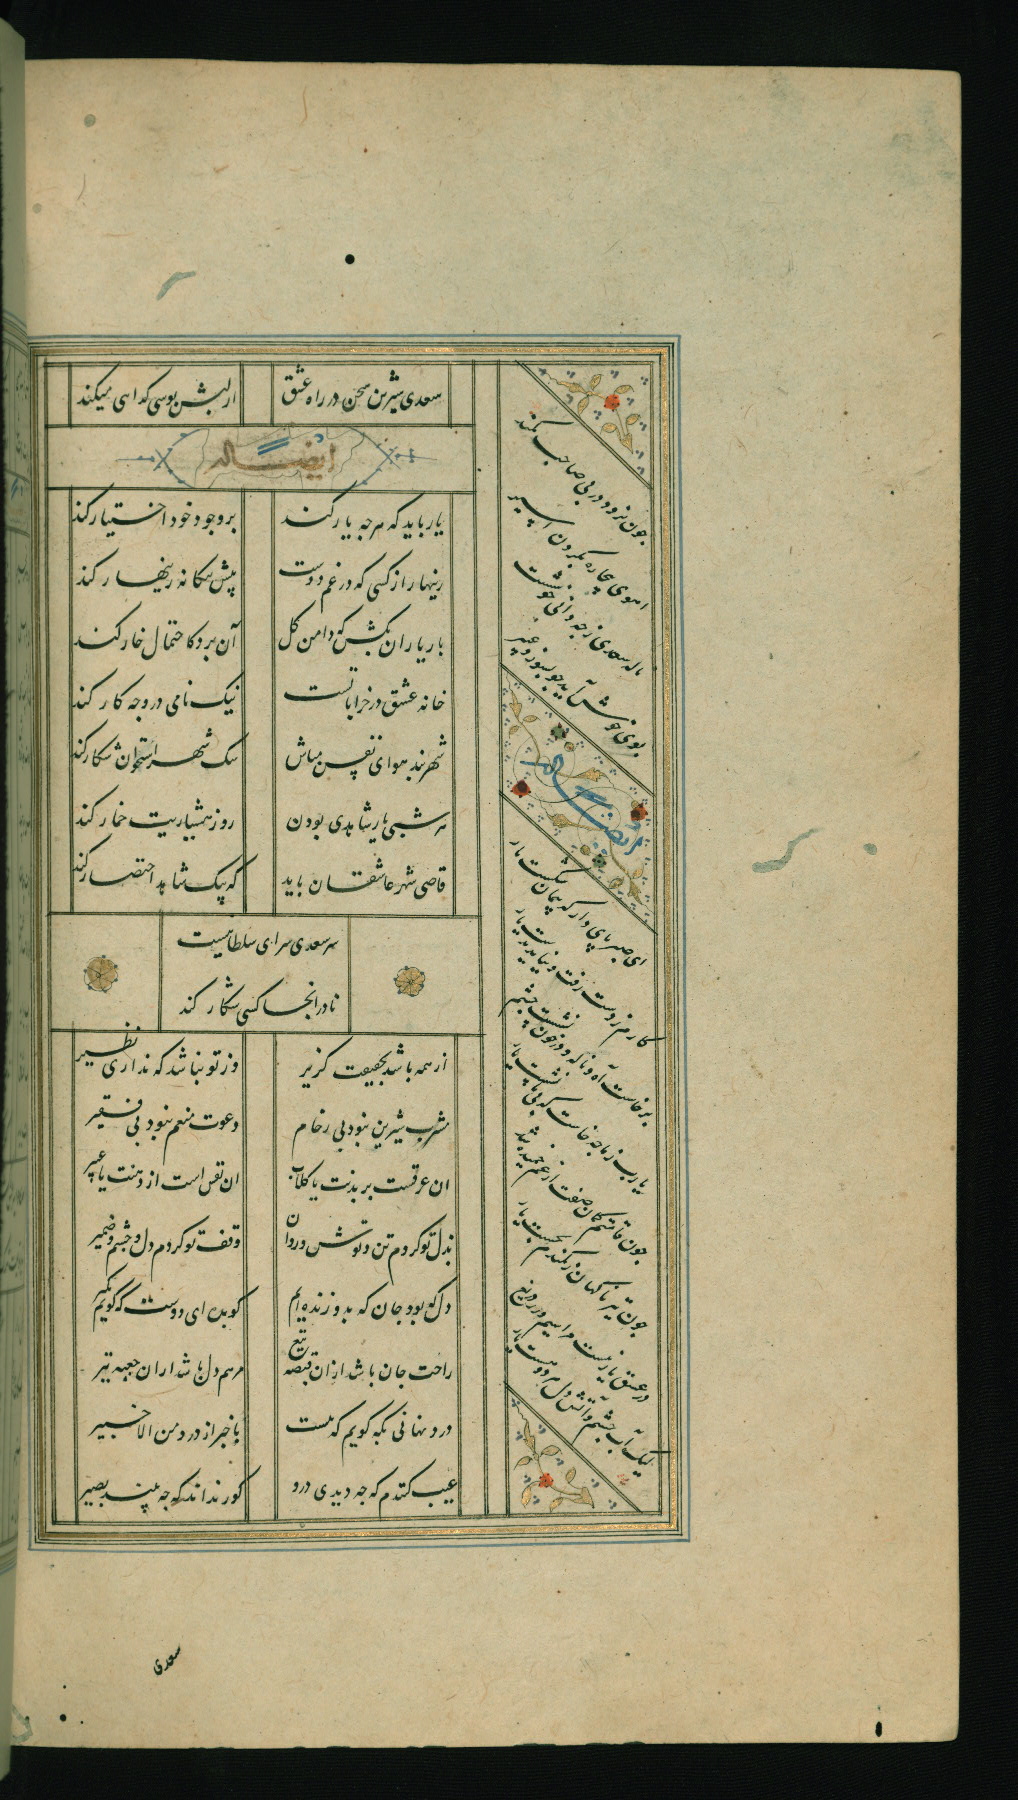 سعدی شیرین سخن در راه عشق از لبش بوسی کدایی میکند
ایضا له
یار باید که هرجه یار کند بر وجود خود اختیار کند
زینهار از کسی که در غم دوست پیش بیکانه زینهار کند
بار یاران بکش که دامن کل آن برد کاحتمال خار کند
خانه عشق در خراباتست نیک نامی در وجه کار کند
شهربند هوای نفس مباش سک شهر استخوان شکار کند
هر شبی یار شاهدی بودن روز هشیاریت خمار کند
قاضی شهر عاشقان باید که بیک شاهد اختصار کند
سر سعدی سرای سلطانست
نادر انجا کسی شکار کند
از همه باشد بحقیقت کزیر وز تو نباشد که نداری نظیر
مشرب شیرین نبود بی زحام دعوت منعم نبود بی فقیر
ان عرقست بر بدنت یا کلاب ان نفس است از دهنت یا عبیر
بذل تو کردم تن و توش و روان وقف تو کردم دل و جشم و ضمیر
دل که بود جان که بدو زنده ایم کو بده ای دوست که کویم بکیر
راحت جان باشد از ان قبضه تیغ مرهم دل باشد از ان جعبه تیر
درد نهانی بکه کویم که نیست باخبر از درد من الا خبیر
عیب کنندم که جه دیدی درو کور نداند که جه بیند بصیر
جون نرود در پی صاحب کمند
اهوی بیچاره بکردن اسیر
ناله سعدی ز جه دانی خوشست
بوی خوش آید جو بسوزد عبیر
ایضا له
ای صبر پای دار که پیمان شکست یار
کارم ز دست رفت و نیامد بدست یار
برخاست آه و ناله و در خون نشست چشم
یا رب ز ما جه خاست که بی ما نشست یار
جون قامتم کمان صفت از غم خمیده شد
جون تیر ناکهان ز کمندم بجست یار
در عشق یار نیست مرا سیم و زر دریغ
لیک آب جشم و آتش دل هر دو هست یار
سعدی